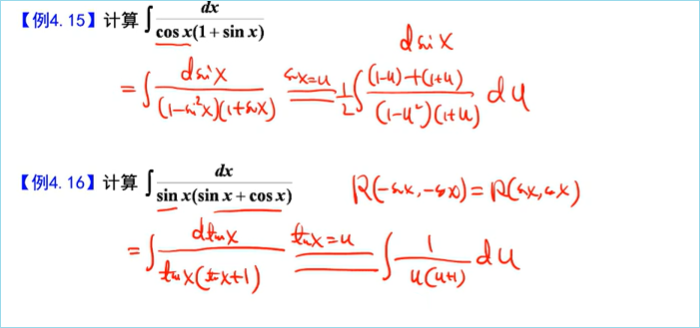 【例4.15】计算 ∫ dx / (cos x(1 + sin x))
d sin x
= ∫ d sin x / ((1-sin²x)(1+sin x)) sin x=u ½∫ ((1-u)+(1+u)) / ((1-u²)(1+u)) du
【例4.16】计算 ∫ dx / (sin x(sin x + cos x)) R(-sin x, -cos x) = R(sin x, cos x)
= ∫ d tan x / (tan x(tan x+1)) tan x = u ∫ 1 / (u(u+1)) du